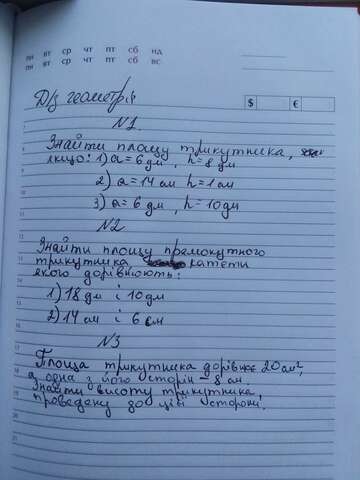 пн вт ср чт пт сб нд
пн вт ср чт пт сб вс
Д/з геометрія
$ €
N1.
Знайти площу трикутника,
якщо: 1) a = 6 дм, h = 8 дм
2) a = 14 см h = 1 см
3) a = 6 дм, h = 10 дм
N2
Знайти площу прямокутного
трикутника, катети
якого дорівнюють:
1) 18 дм і 10 дм
2) 14 см і 6 см
N3
Площа трикутника дорівнює 20 см²,
а одна з його сторін – 8 см.
Знайти висоту трикутника,
проведену до цієї сторони.